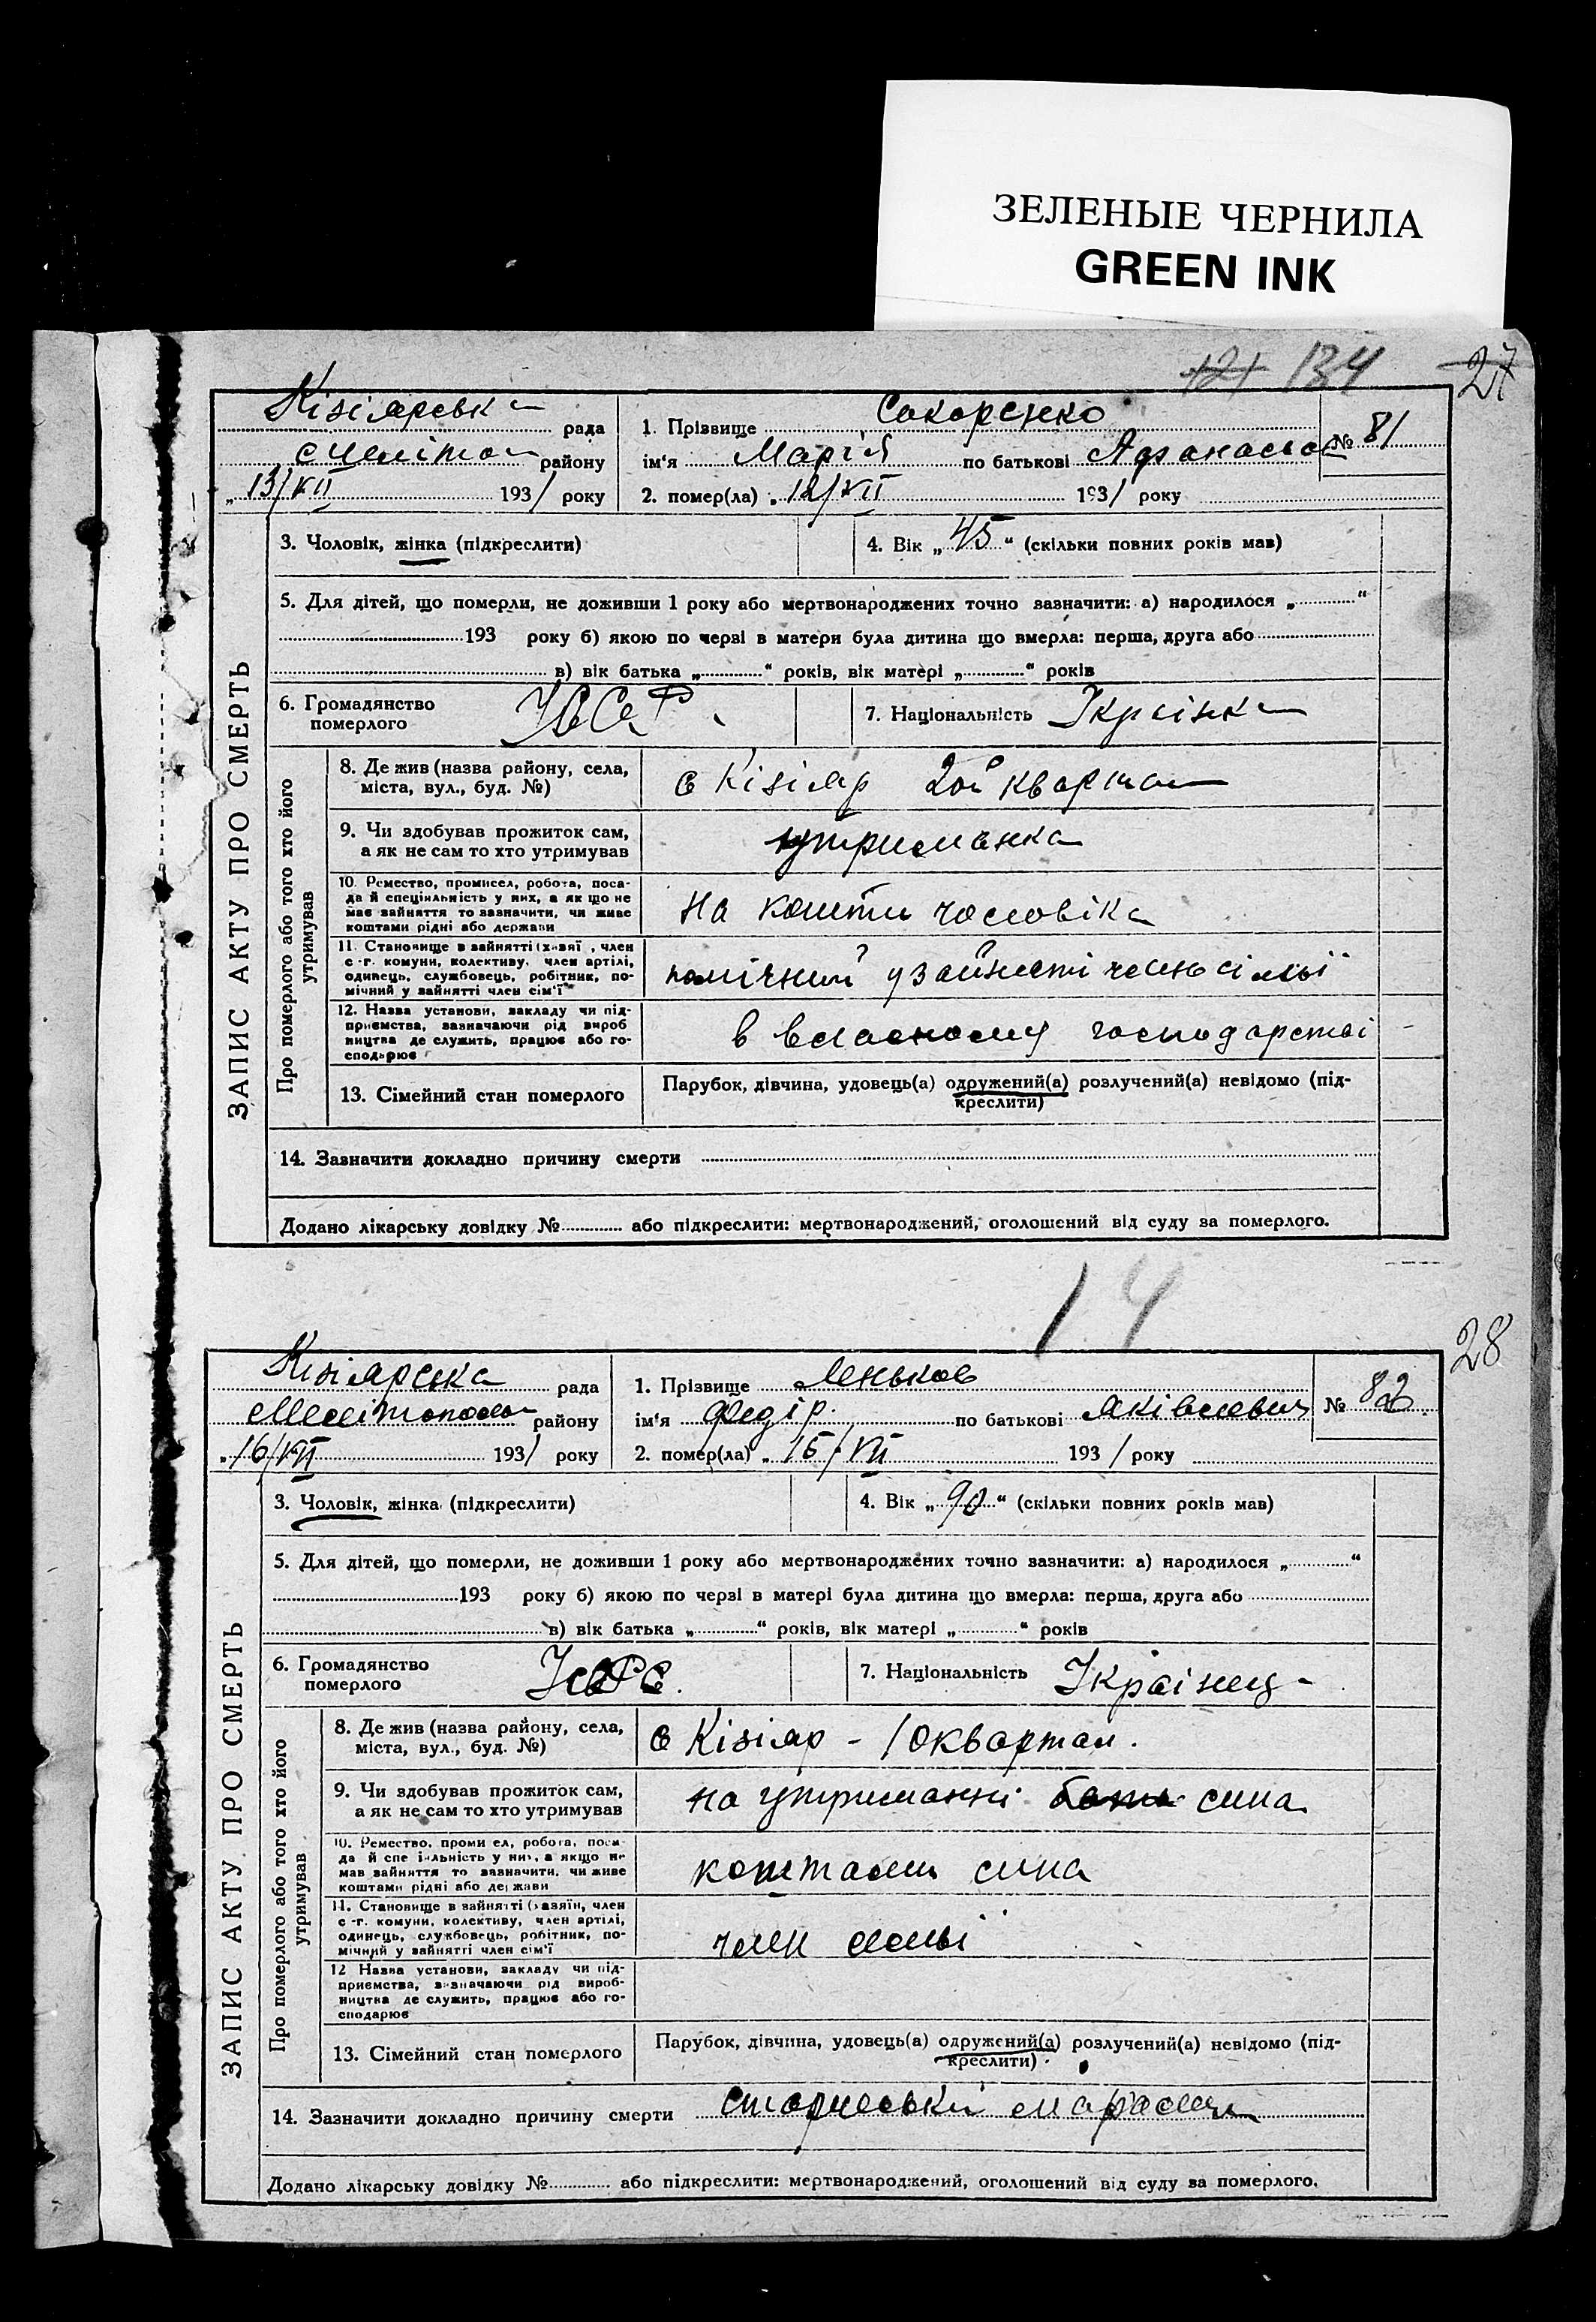 ЗЕЛЕНЫЕ ЧЕРНИЛА
GREEN INK
121 134 27
Кізіярська рада
Меліто району
„13/VII 1931 року
1. Прізвище Сокоренко
ім'я Марія по батькові Афанасьє
№ 81
2. помер(ла) „12/VII 1931 року
ЗАПИС АКТУ ПРО СМЕРТЬ
3. Чоловік, жінка (підкреслити)
4. Вік „45“ (скільки повних років мав)
5. Для дітей, що померли, не доживши 1 року або мертвонароджених точно зазначити: а) народилося „ “
193 року б) якою по черзі в матери була дитина що вмерла: перша, друга або
в) вік батька „ “ років, вік матері „ “ років
6. Громадянство
померлого
УССР
7. Національність Українка
Про померлого або того хто його
утримував
8. Де жив (назва району, села,
міста, вул., буд. №)
с Кізіяр 2ой квартал
9. Чи здобував прожиток сам,
а як не сам то хто утримував
утриманка
10. Ремество, промисел, робота, поса-
да й спеціяльність у них, а як що не
має зайняття то зазначити, чи живе
коштами рідні або держави
на кошти чоловіка
11. Становище в зайнятті (хазяї , член
с.-г. комуни, колективу, член артілі,
одинець, службовець, робітник, по-
мічний у зайнятті член сім'ї
помічний у зайняті член сімьї
12. Назва установи, закладу чи під-
приємства, зазначаючи рід вироб
ництва де служить, працює або го-
сподарює
в власному господарстві
13. Сімейний стан померлого
Парубок, дівчина, удовець(а) одружений(а) розлучений(а) невідомо (під-
креслити)
14. Зазначити докладно причину смерти
Додано лікарську довідку № або підкреслити: мертвонароджений, оголошений від суду за померлого.
14
28
Кізіярська рада
Мелітопол району
„16/VII 1931 року
1. Прізвище Леньков
ім'я Федір по батькові Яківлевич
№ 82
2. помер(ла) „15/VII 1931 року
ЗАПИС АКТУ ПРО СМЕРТЬ
3. Чоловік, жінка (підкреслити)
4. Вік „90“ (скільки повних років мав)
5. Для дітей, що померли, не доживши 1 року або мертвонароджених точно зазначити: а) народилося „ “
193 року б) якою по черзі в матері була дитина що вмерла: перша, друга або
в) вік батька „ “ років, вік матері „ “ років
6. Громадянство
померлого
7. Національність Українец
Про померлого або того хто його
утримував
8. Де жив (назва району, села,
міста, вул., буд. №)
с Кізіяр - 10 квартал.
9. Чи здобував прожиток сам,
а як не сам то хто утримував
на утриманні сина
10. Ремество, проми ел, робота, поса-
да й спе іяльність у них, а якщо не
мав зайняття то зазначити, чи живе
коштами рідні або держави
коштами сина
11. Становище в зайнятті (хазяїн, член
с.-г. комуни, колективу, член артілі,
одинець, службовець, робітник, по-
мічний у зайнятті член сім'ї
член сімьї
12 Назва установи, закладу чи під-
приємства, зазначаючи рід вироб-
ництва де служить, працює або го-
сподарює
13. Сімейний стан померлого
Парубок, дівчина, удовець(а) одружений(а) розлучений(а) невідомо (під-
креслити)
14. Зазначити докладно причину смерти старческий маразм
Додано лікарську довідку № або підкреслити: мертвонароджений, оголошений від суду за померлого.